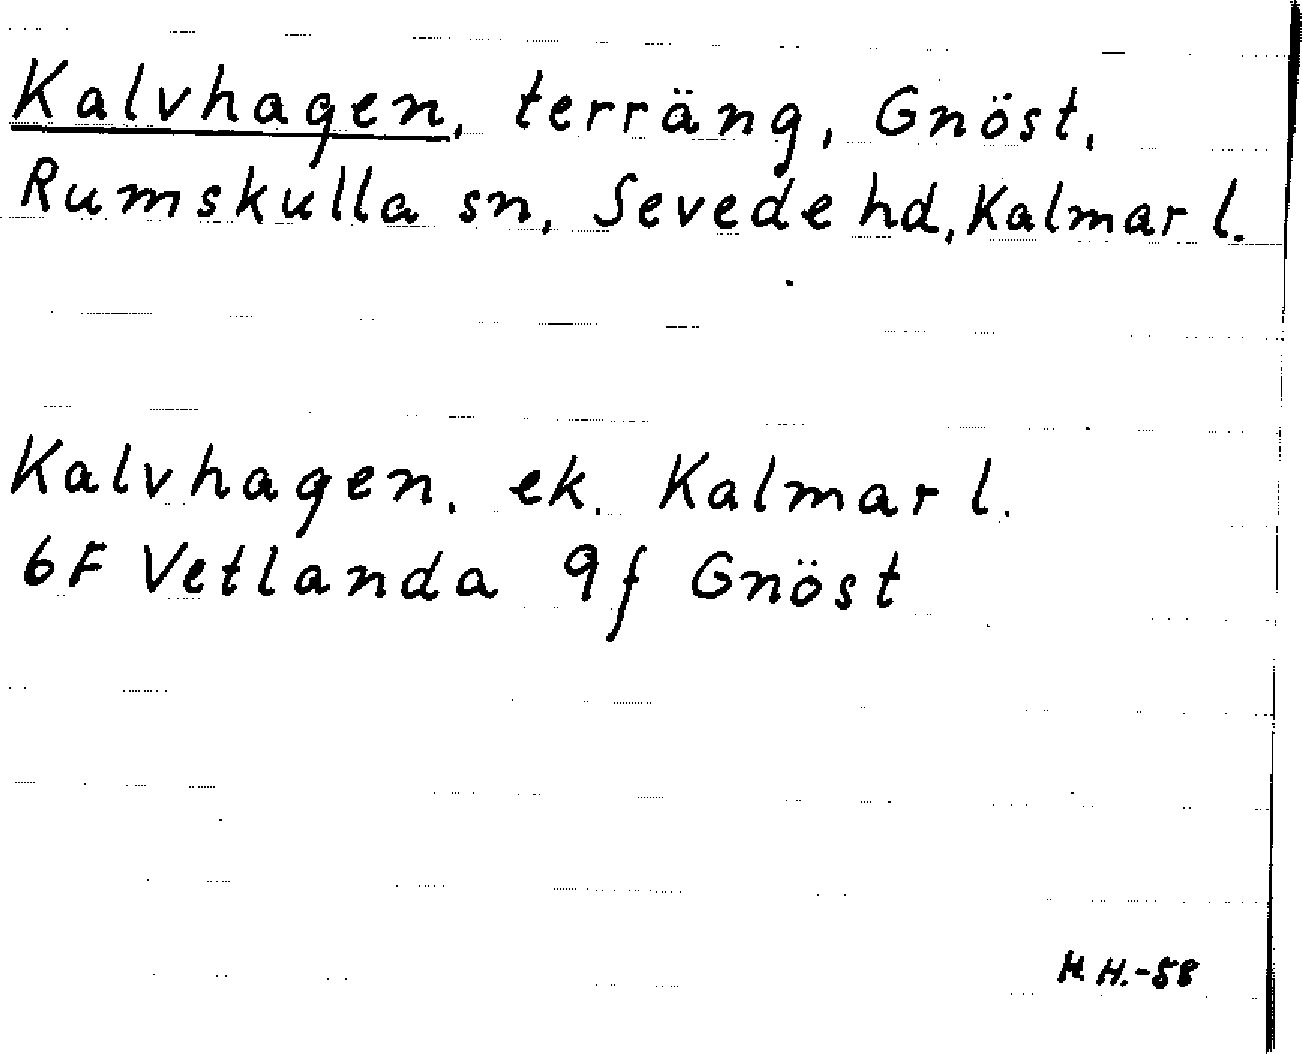 Kalvhagen, terräng, Gnöst,
Rumskulla sn, Sevede hd, Kalmar l.
Kalvhagen, ek. Kalmar l.
6F Vetlanda 9f Gnöst
M H.-58